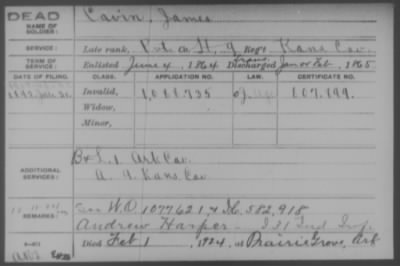 DEAD
NAME OF SOLDIER: Cavin, James
SERVICE: Late rank, Pvt. Co. H, 9 Reg't Kans Cav.
TERM OF SERVICE: Enlisted June 4, 1864 Discharged Jan or Feb, 1865
trans
DATE OF FILING. CLASS. APPLICATION NO. LAW. CERTIFICATE NO.
Invalid, 107,199
Widow,
Minor,
ADDITIONAL SERVICES: B & L. 1 Ark Cav
A. 9. Kans. Cav
REMARKS: W.O. 1077621 & 582,918
Andrew Harper - I 31 Ind Inf.
Died Feb 1, 1924, at Prairie Grove, Ark